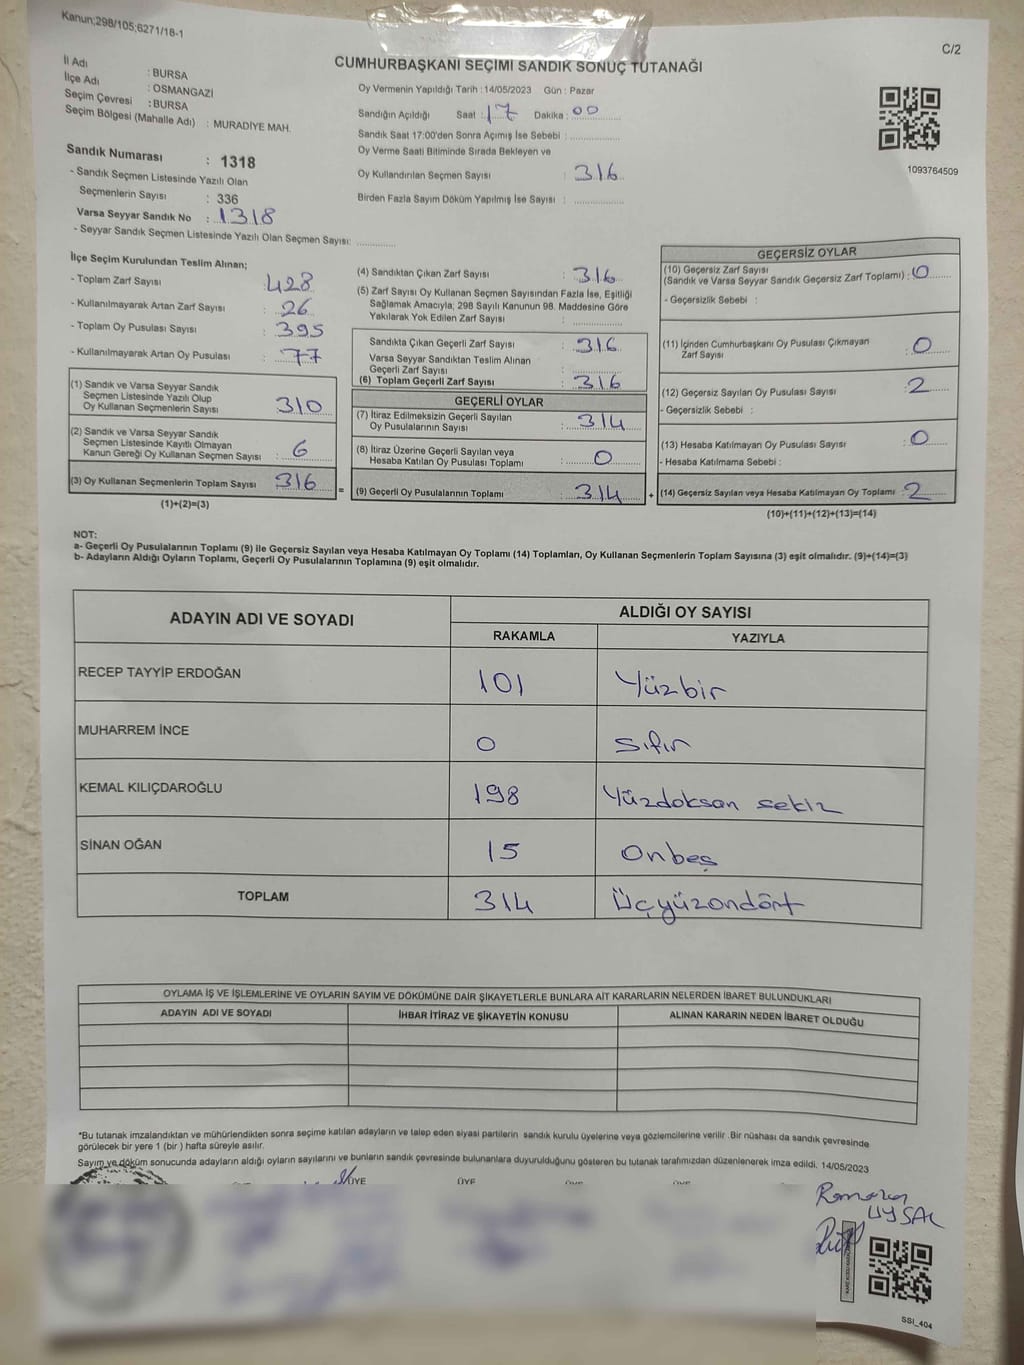 Kanun;298/105;6271/18-1
C/2
CUMHURBAŞKANI SEÇİMİ SANDIK SONUÇ TUTANAĞI
İl Adı : BURSA
İlçe Adı : OSMANGAZİ
Seçim Çevresi : BURSA
Seçim Bölgesi (Mahalle Adı) : MURADİYE MAH.
Oy Vermenin Yapıldığı Tarih : 14/05/2023 Gün : Pazar
Sandığın Açıldığı Saat : 17 Dakika : 00
Sandık Saat 17:00'den Sonra Açımış İse Sebebi :
Oy Verme Saati Bitiminde Sırada Bekleyen ve
Oy Kullandırılan Seçmen Sayısı : 316
Birden Fazla Sayım Döküm Yapılmış İse Sayısı :
1093764509
Sandık Numarası : 1318
- Sandık Seçmen Listesinde Yazılı Olan
Seçmenlerin Sayısı : 336
Varsa Seyyar Sandık No : 1318
- Seyyar Sandık Seçmen Listesinde Yazılı Olan Seçmen Sayısı:
İlçe Seçim Kurulundan Teslim Alınan;
- Toplam Zarf Sayısı : 428
- Kullanılmayarak Artan Zarf Sayısı : 26
- Toplam Oy Pusulası Sayısı : 395
- Kullanılmayarak Artan Oy Pusulası : 77
(1) Sandık ve Varsa Seyyar Sandık
Seçmen Listesinde Yazılı Olup
Oy Kullanan Seçmenlerin Sayısı : 310
(2) Sandık ve Varsa Seyyar Sandık
Seçmen Listesinde Kayıtlı Olmayan
Kanun Gereği Oy Kullanan Seçmen Sayısı : 6
(3) Oy Kullanan Seçmenlerin Toplam Sayısı : 316
(1)+(2)=(3)
(4) Sandıktan Çıkan Zarf Sayısı : 316
(5) Zarf Sayısı Oy Kullanan Seçmen Sayısından Fazla İse, Eşitliği
Sağlamak Amacıyla; 298 Sayılı Kanunun 98. Maddesine Göre
Yakılarak Yok Edilen Zarf Sayısı :
Sandıkta Çıkan Geçerli Zarf Sayısı : 316
Varsa Seyyar Sandıktan Teslim Alınan
Geçerli Zarf Sayısı :
(6) Toplam Geçerli Zarf Sayısı : 316
GEÇERLİ OYLAR
(7) İtiraz Edilmeksizin Geçerli Sayılan
Oy Pusulalarının Sayısı : 314
(8) İtiraz Üzerine Geçerli Sayılan veya
Hesaba Katılan Oy Pusulası Toplamı : 0
= (9) Geçerli Oy Pusulalarının Toplamı : 314
GEÇERSİZ OYLAR
(10) Geçersiz Zarf Sayısı
(Sandık ve Varsa Seyyar Sandık Geçersiz Zarf Toplamı) : 0
- Geçersizlik Sebebi :
(11) İçinden Cumhurbaşkanı Oy Pusulası Çıkmayan
Zarf Sayısı : 0
(12) Geçersiz Sayılan Oy Pusulası Sayısı : 2
- Geçersizlik Sebebi :
(13) Hesaba Katılmayan Oy Pusulası Sayısı : 0
- Hesaba Katılmama Sebebi :
+ (14) Geçersiz Sayılan veya Hesaba Katılmayan Oy Toplamı : 2
(10)+(11)+(12)+(13)=(14)
NOT:
a- Geçerli Oy Pusulalarının Toplamı (9) ile Geçersiz Sayılan veya Hesaba Katılmayan Oy Toplamı (14) Toplamları, Oy Kullanan Seçmenlerin Toplam Sayısına (3) eşit olmalıdır. (9)+(14)=(3)
b- Adayların Aldığı Oyların Toplamı, Geçerli Oy Pusulalarının Toplamına (9) eşit olmalıdır.
ADAYIN ADI VE SOYADI ALDIĞI OY SAYISI
RAKAMLA YAZIYLA
RECEP TAYYİP ERDOĞAN 101 Yüzbir
MUHARREM İNCE 0 Sıfır
KEMAL KILIÇDAROĞLU 198 Yüzdoksan sekiz
SİNAN OĞAN 15 Onbeş
TOPLAM 314 Üçyüzondört
OYLAMA İŞ VE İŞLEMLERİNE VE OYLARIN SAYIM VE DÖKÜMÜNE DAİR ŞİKAYETLERLE BUNLARA AİT KARARLARIN NELERDEN İBARET BULUNDUKLARI
ADAYIN ADI VE SOYADI İHBAR İTİRAZ VE ŞİKAYETİN KONUSU ALINAN KARARIN NEDEN İBARET OLDUĞU
*Bu tutanak imzalandıktan ve mühürlendikten sonra seçime katılan adayların ve talep eden siyasi partilerin sandık kurulu üyelerine veya gözlemcilerine verilir. Bir nüshası da sandık çevresinde
görülecek bir yere 1 (bir) hafta süreyle asılır.
Sayım ve döküm sonucunda adayların aldığı oyların sayılarını ve bunların sandık çevresinde bulunanlara duyurulduğunu gösteren bu tutanak tarafımızdan düzenlenerek imza edildi. 14/05/2023
ÜYE ÜYE
Ramazan
UYSAL
SSI_404